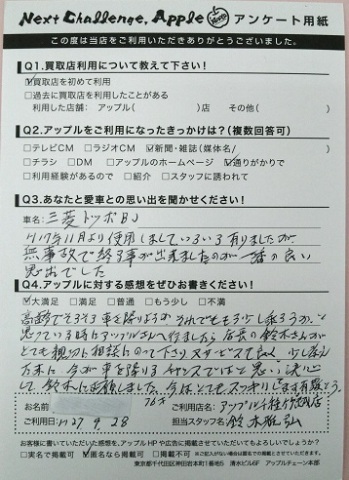 Next Challenge, Apple アンケート用紙
この度は当店をご利用いただきありがとうございました。
Q1.買取店利用について教えて下さい!
☑買取店を初めて利用
□過去に買取店を利用したことがある
利用した店舗: アップル( )店 その他( )
Q2.アップルをご利用になったきっかけは?(複数回答可)
□テレビCM □ラジオCM ☑新聞・雑誌(媒体名/ )
□チラシ □DM □アップルのホームページ ☑通りがかりで
□利用経験があるので □紹介 □スタッフに誘われて
Q3.あなたと愛車との思い出を聞かせください!
車名: 三菱トッポBJ
H17年11月より使用しましていろいろ有りましたが
無事故で終る事が出来ましたのが一番の良い
思出でした
Q4.アップルに対する感想をぜひお書きください!
☑大満足 □満足 □普通 □もう少し □不満
高齢でそろそろ車を降りようか それでももう少し乗ろうか、と
思っている時にアップルさんへ行ましたら店長の鈴木さんが
とても親切に相談にのって下さり 又サービスも良く 少し
今が車を降りるチャンスではと思い 決心
して 鈴木に 今はとてもスッキリします 有難とう
お名前 76才 ご利用店名: アップル千種 店
ご利用日: H27 9 28 担当スタッフ名 鈴木雅弘
お客様に書いていただいた感想を、アップルHPや広告に掲載させていただいてもよろしいでしょうか?
□実名で掲載可 ☑匿名なら掲載可 □不可
東京都千代田区神田岩本町1番地5 清水ビル6F アップルチェーン本部